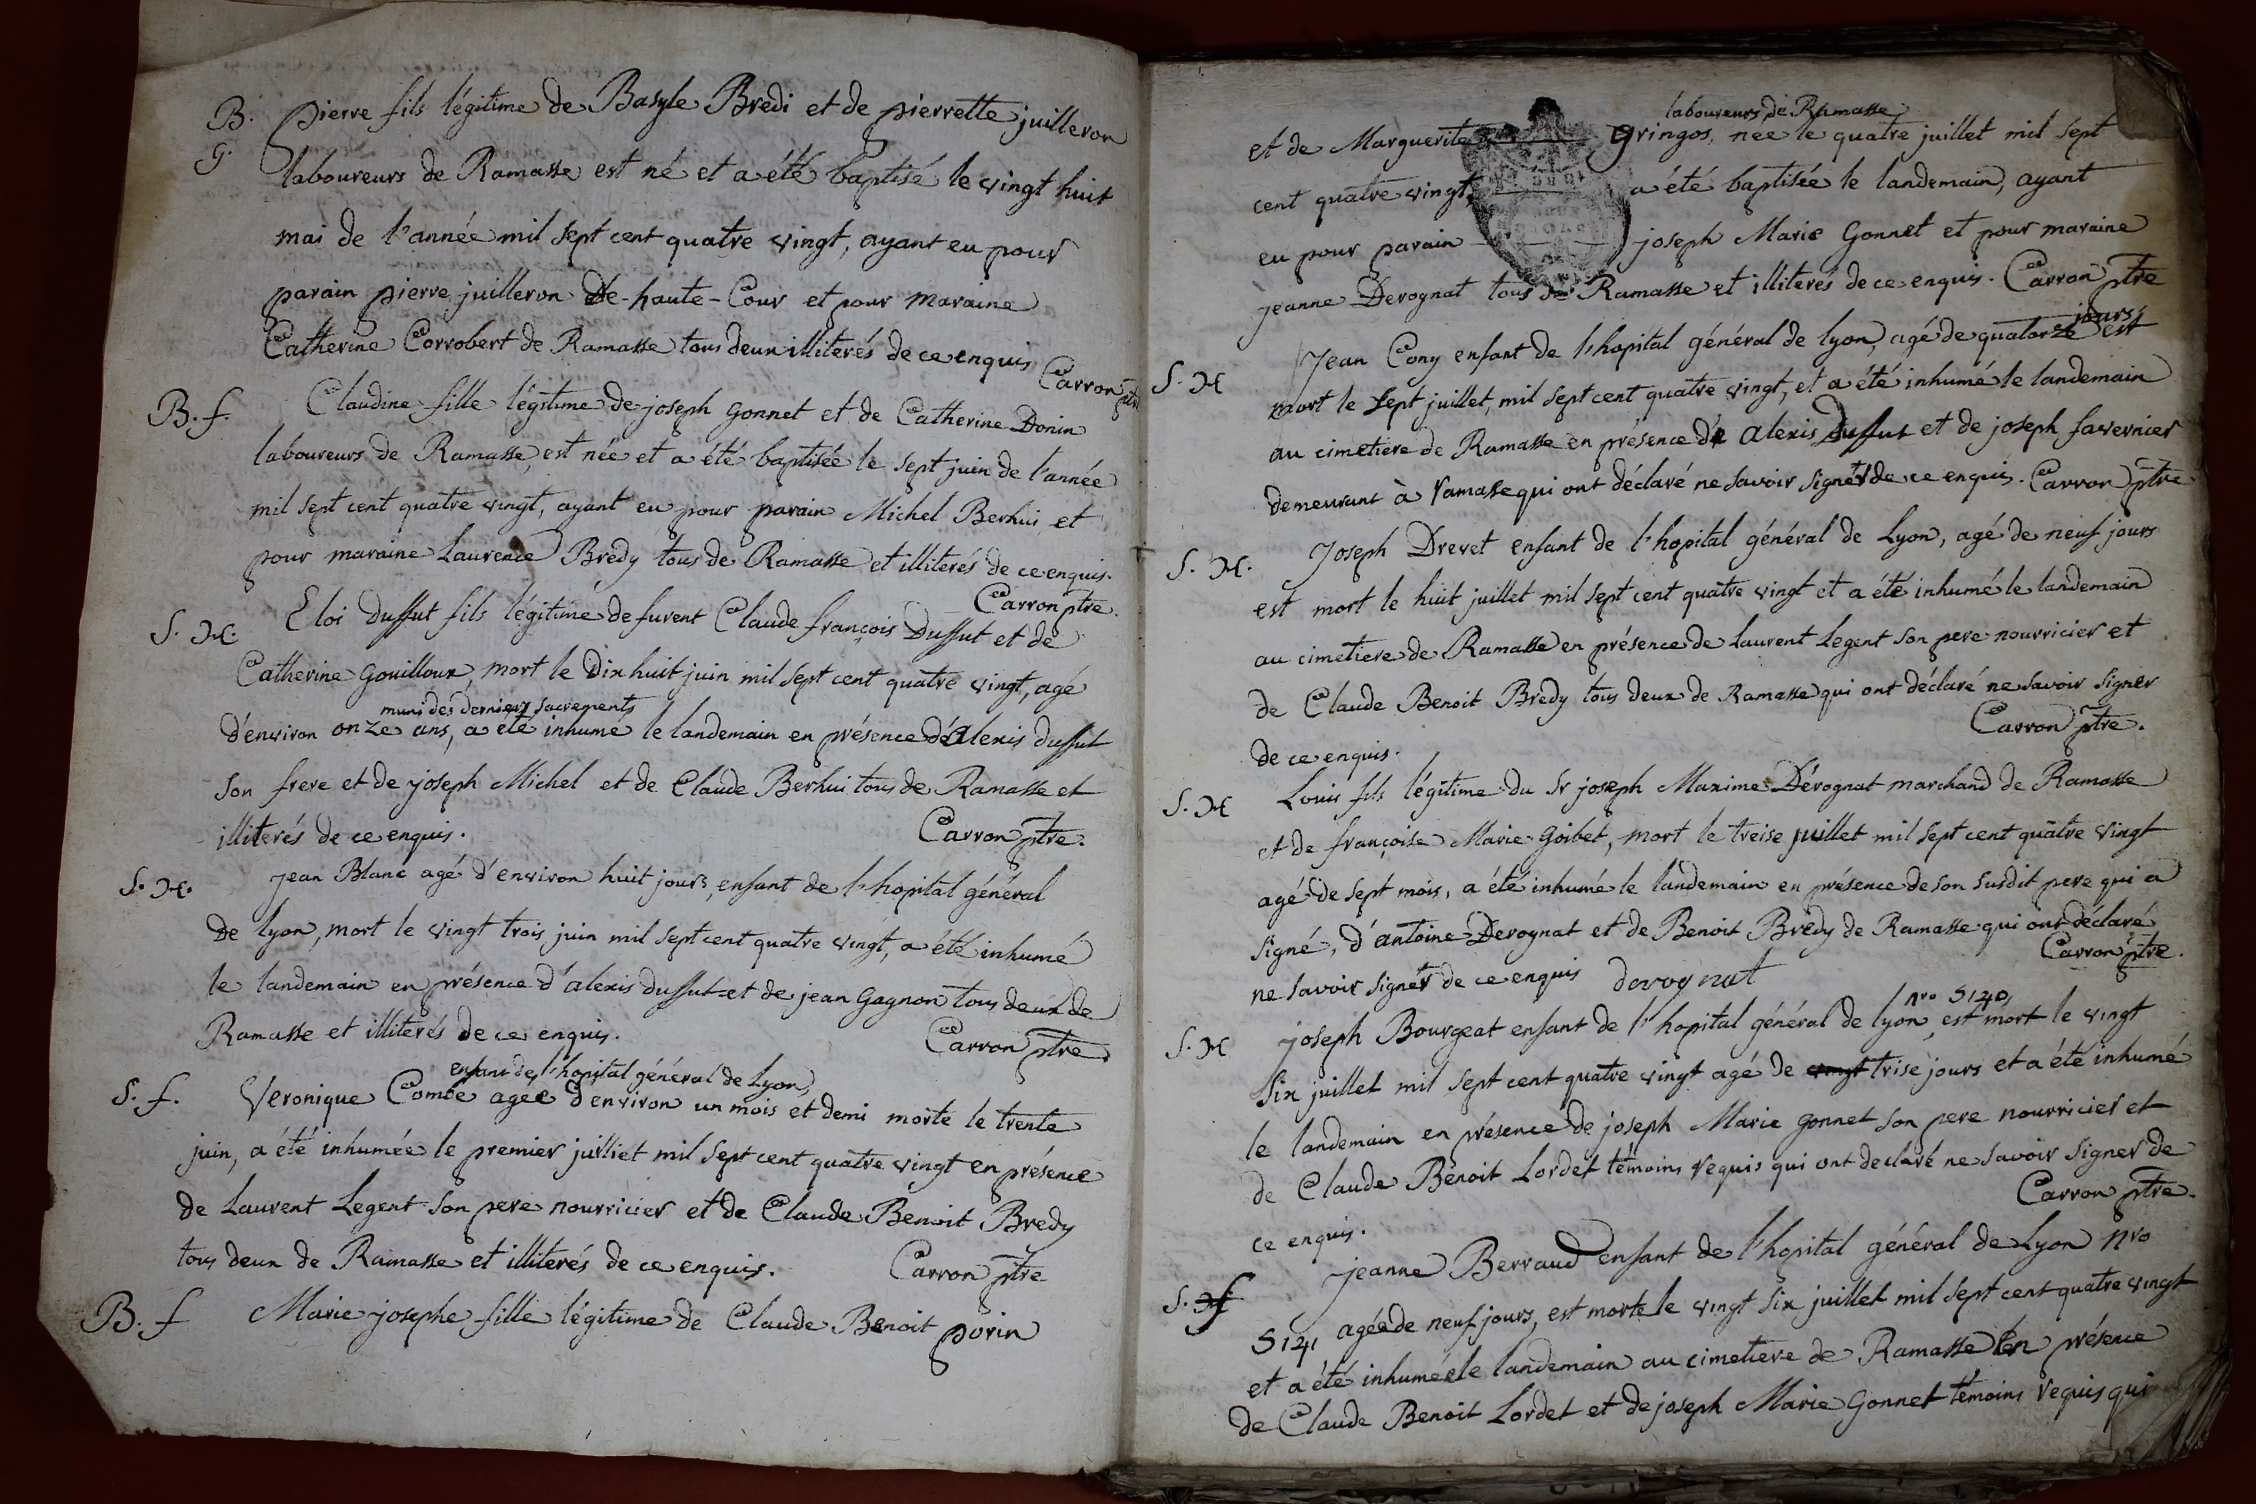 B. G. pierre fils légitime de Basyle Bredi et de pierrette juilleron
laboureurs de Ramasse est né et a été baptisé le vingt huit
mai de l'année mil sept cent quatre vingt, ayant eu pour
parain pierre juilleron De-haute-Cour et pour maraine
Catherine Corrobert de Ramasse tous deux illiterés de ce enquis Carron ptre
B. f. Claudine fille légitime de joseph gonnet et de Catherine Donin
laboureurs de Ramasse, est née et a été baptisée le sept juin de l'année
mil sept cent quatre vingt, ayant eu pour parain Michel Berhui et
pour maraine Laurence Bredy tous de Ramasse et illiterés de ce enquis.
Carron ptre.
S. M. Eloi Duffut fils légitime de furent Claude françois Duffut et de
Catherine Gouilloux, mort le Dix huit juin mil sept cent quatre vingt, agé
muni des derniers sacrements
d'environ onze ans, a été inhumé le landemain en présence d'alexis duffut
son frere et de joseph Michel et de Claude Berhui tous de Ramasse et
illiterés de ce enquis. Carron ptre.
S. M. Jean Blanc agé d'environ huit jours, enfant de l'hopital général
de lyon, mort le vingt trois juin mil sept cent quatre vingt, a été inhumé
le landemain en présence d'alexis duffut et de jean Gagnon tous deux de
Ramasse et illiterés de ce enquis. Carron ptre.
enfant de l'hopital général de Lyon,
S. f. Veronique Combe agée d'environ un mois et demi morte le trente
juin, a été inhumée le premier julliet mil sept cent quatre vingt en présence
de Laurent Legent son pere nourricier et de Claude Benoit Bredy
tous deux de Ramasse et illiterés de ce enquis. Carron ptre
B. f Marie josephe fille légitime de Claude Benoit porin
laboureurs de Ramasse
et de Marguerite gringos, née le quatre juillet mil sept
cent quatre vingt, a été baptisée le landemain, ayant
eu pour parain joseph Marie Gonnet et pour maraine
jeanne Derognat tous de Ramasse et illiterés de ce enquis. Carron ptre
jours
S. M Jean Cony enfant de l'hopital général de lyon, agé de quatorze est
mort le sept juillet, mil sept cent quatre vingt, et a été inhumé le landemain
au cimetiere de Ramasse en présence de alexis Duffut et de joseph favernier
demeurant à ramasse qui ont déclaré ne savoir signer de ce enquis. Carron ptre.
S. M. Joseph Drevet enfant de l'hopital général de Lyon, agé de neuf jours
est mort le huit juillet mil sept cent quatre vingt et a été inhumé le landemain
au cimetiere de Ramasse en présence de Laurent Legent son pere nourricier et
de Claude Benoit Bredy tous deux de Ramasse qui ont déclaré ne savoir signer
de ce enquis. Carron ptre.
S. M Louis fils légitime du Sr joseph Maxime Dérognat marchand de Ramasse
et de françoise Marie Goibet, mort le treise juillet mil sept cent quatre vingt
agé de sept mois, a été inhumé le landemain en présence de son susdit pere qui a
signé, d'antoine Derognat et de Benoit Bredy de Ramasse qui ont déclaré
ne savoir signer de ce enquis derognat Carron ptre.
nro 5140
S. M joseph Bourgeat enfant de l'hopital général de lyon, est mort le vingt
six juillet mil sept cent quatre vingt agé de vingt trise jours et a été inhumé
le landemain en présence de joseph Marie gonnet son pere nourricier et
de Claude Benoit Lordet témoins requis qui ont declaré ne savoir signer de
ce enquis. Carron ptre.
S. f jeanne Berraud enfant de l'hopital général de Lyon nro
5141 agée de neuf jours, est morte le vingt six juillet mil sept cent quatre vingt
et a été inhumée le landemain au cimetiere de Ramasse en présence
de Claude Benoit Lordet et de joseph Marie Gonnet témoins requis qui